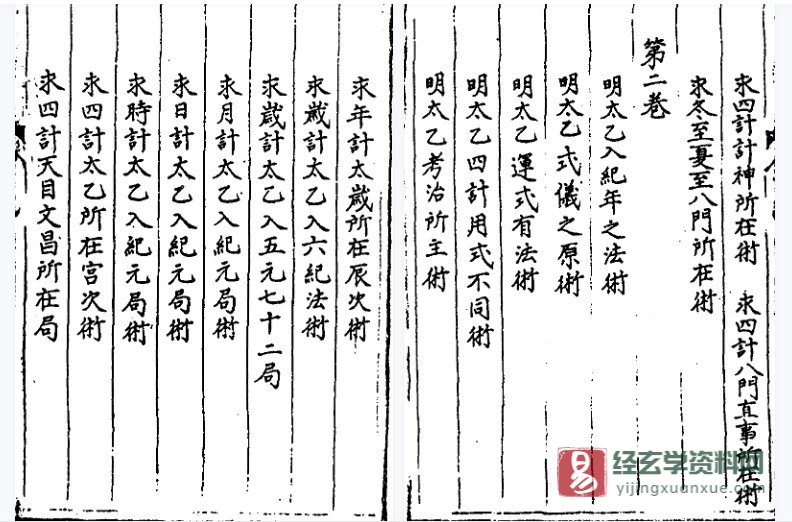 求四計計神所在術　求四計八門直事所在術
求冬至夏至八門所在術
第二卷
明太乙入紀年之法術
明太乙式儀之原術
明太乙運式有法術
明太乙四計用式不同術
明太乙考治所主術
求年計太歲所在辰次術
求歲計太乙入六紀法術
求歲計太乙入五元七十二局
求月計太乙入紀元局術
求日計太乙入紀元局術
求時計太乙入紀元局術
求四計太乙所在宮次術
求四計天目文昌所在局
易
经玄学资料网
yijingxuanxue.com